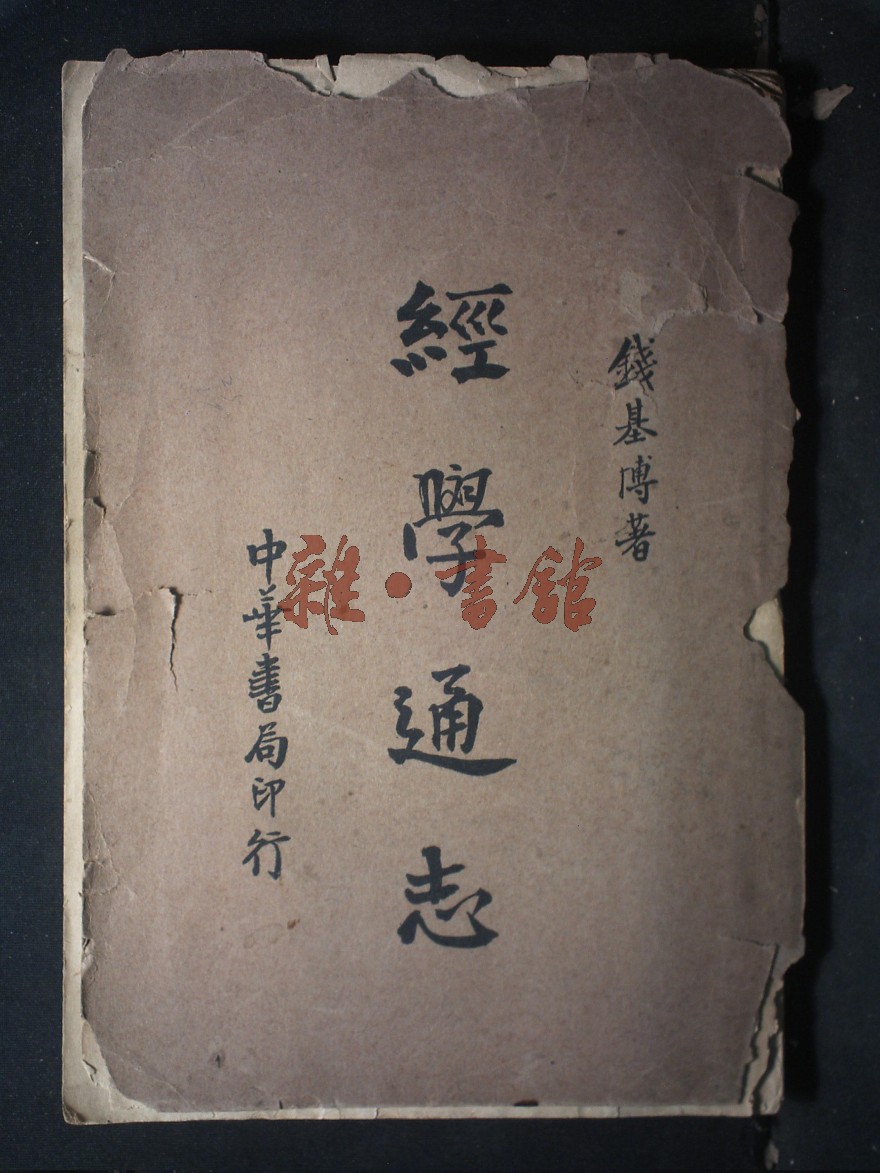 錢基博著
經學通志
中華書局印行
雜·書館